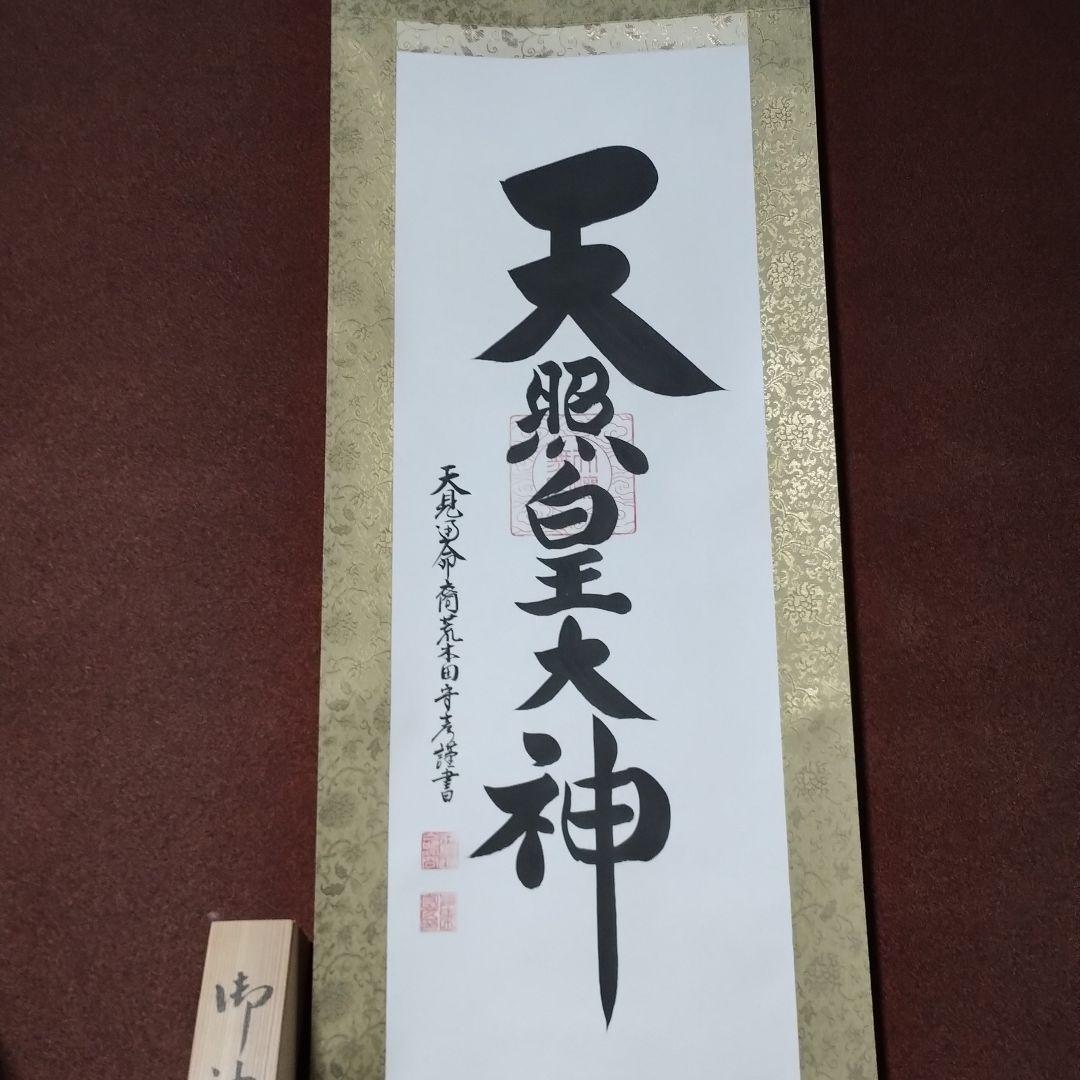 天照皇大神
天見通命裔荒木田守彦謹書
御